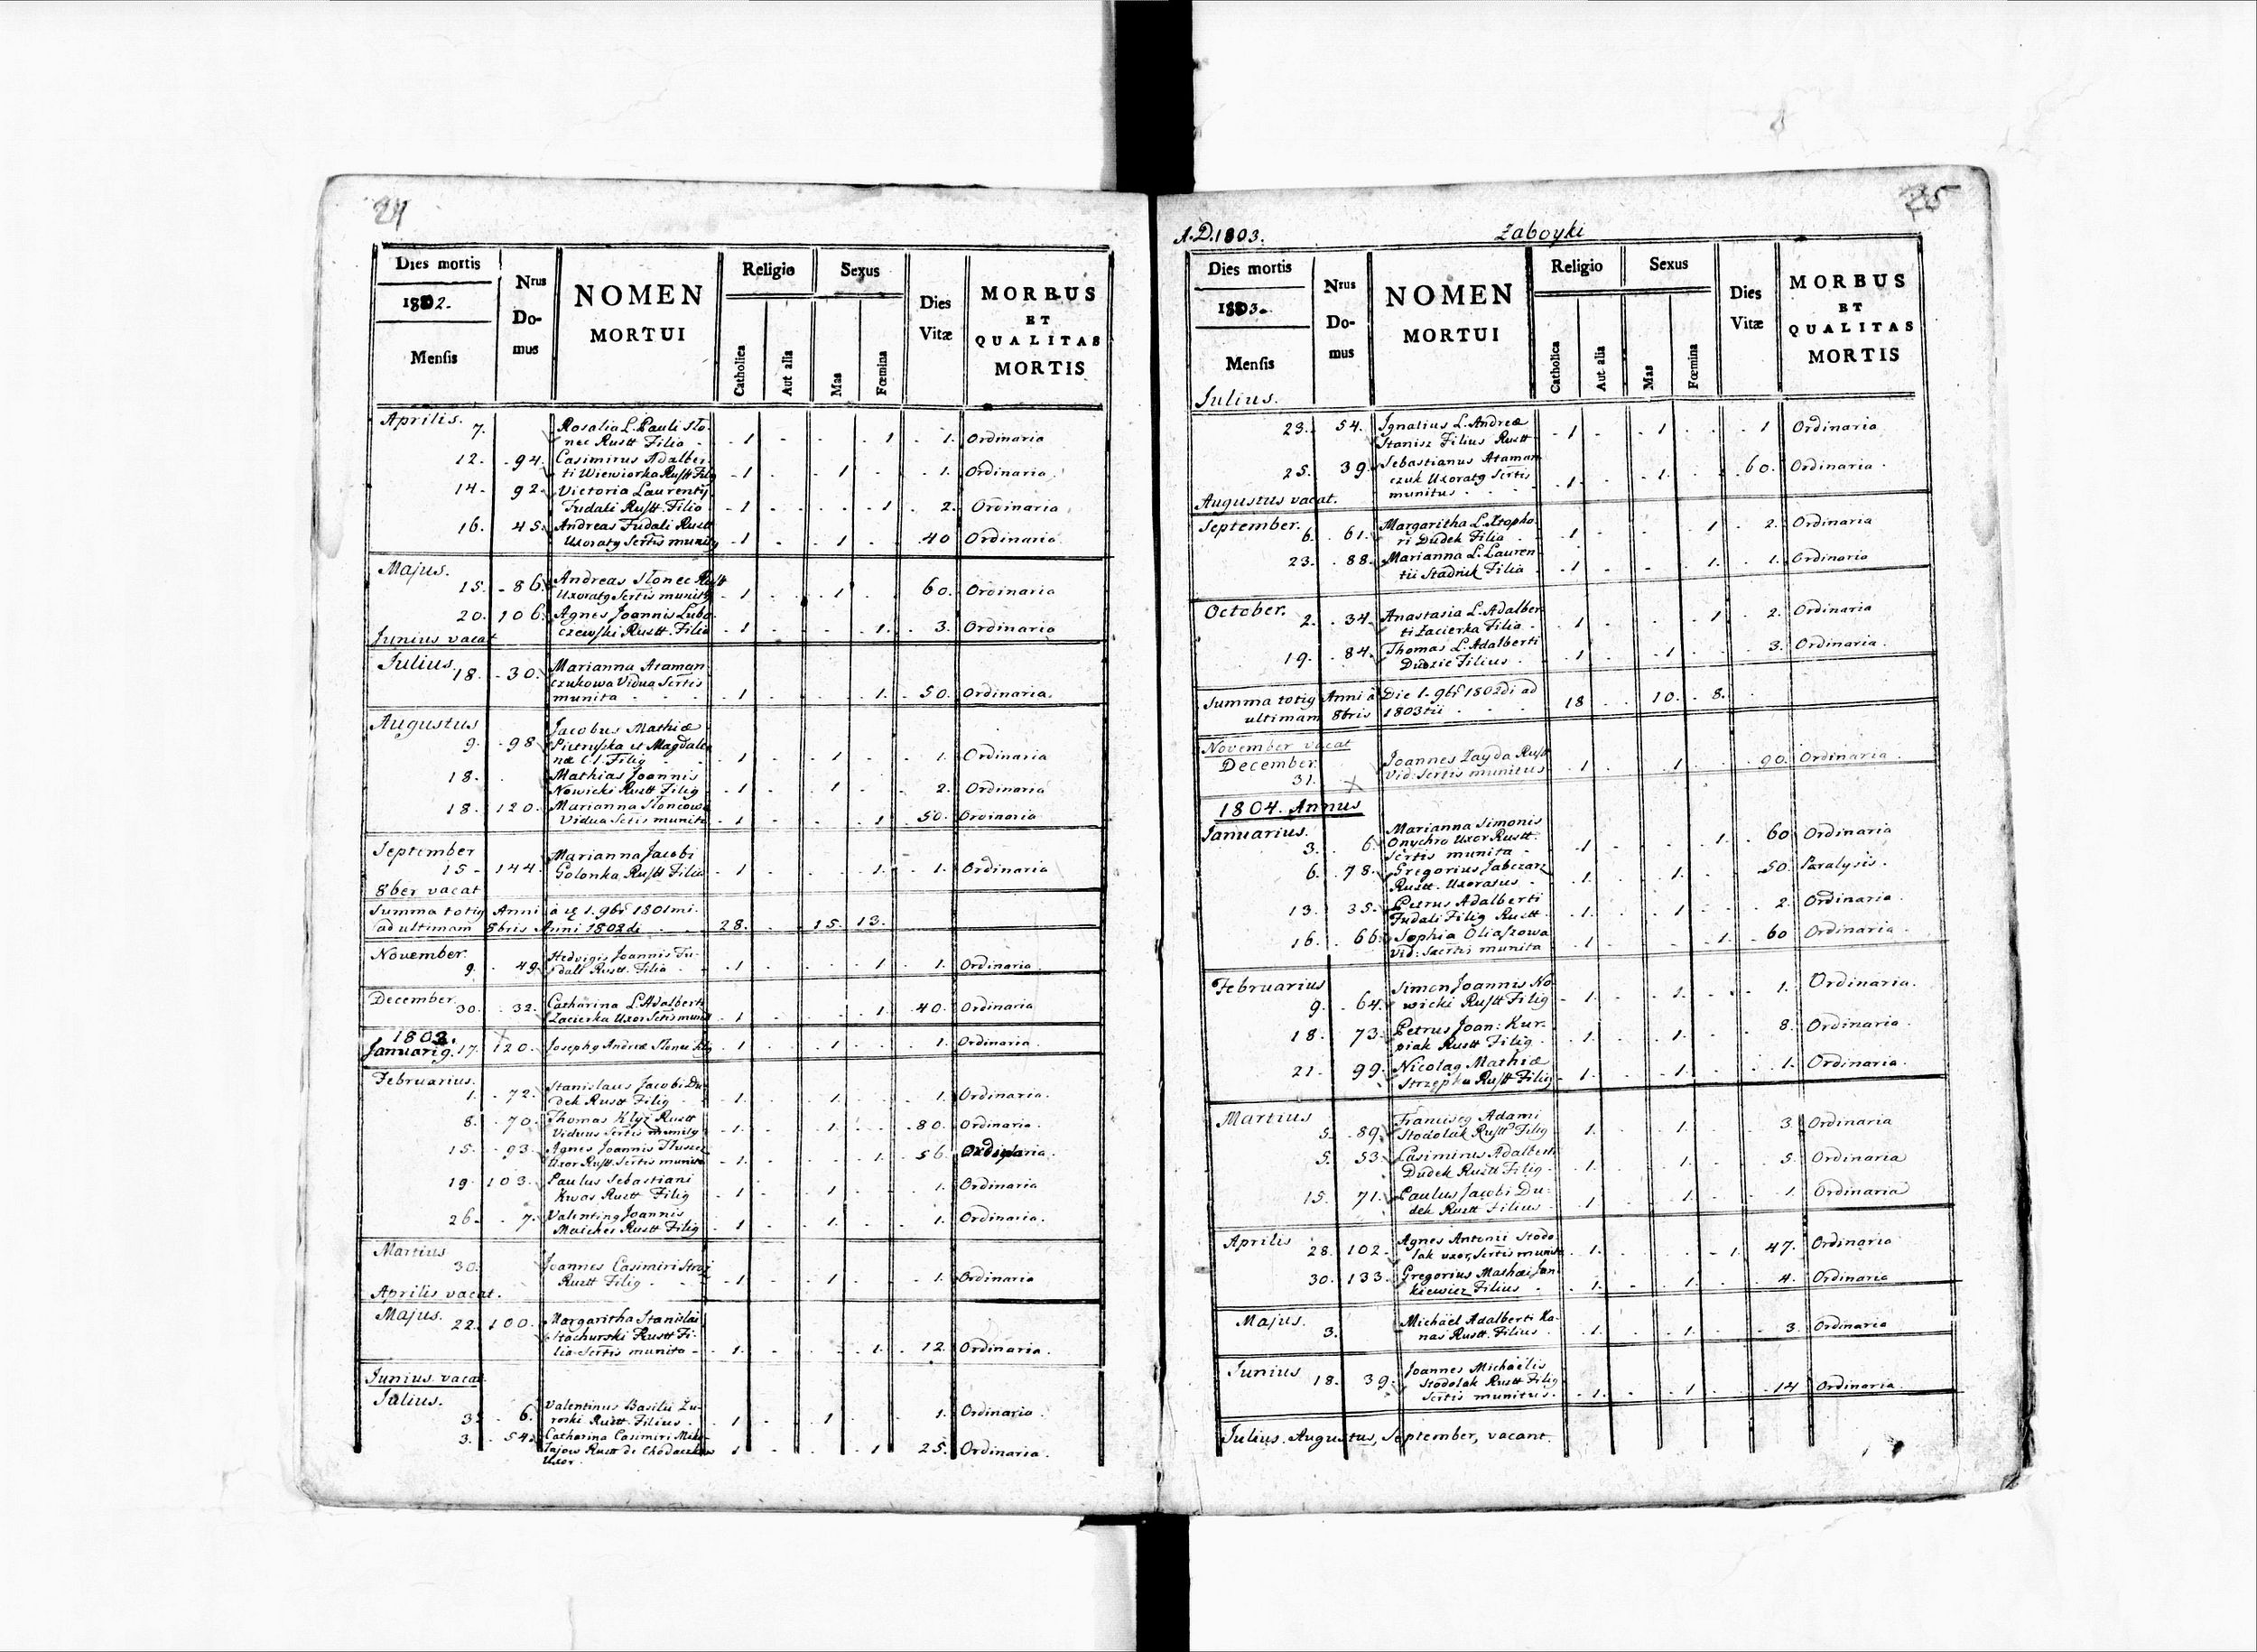 24
Dies mortis
1802.
Mensis
Nrus
Do-
mus
NOMEN
MORTUI
Religio
Catholica
Aut alia
Sexus
Mas
Fœmina
Dies
Vitæ
MORBUS
ET
QUALITAS
MORTIS
Aprilis.
7. Rosalia L. Pauli Sło-
nec Rustt Filia - 1 - . . 1 . 1. Ordinaria
12. - 94. Casimirus Adalber-
ti Wiewiorka Rustt Filig - 1 - . 1 . . 1. Ordinaria
14 - 92 - Victoria Laurentij
Fudali Rustt. Filia - 1 - . . 1 . 2. Ordinaria
16. 45. Andreas Fudali Rustt
Uxoratg Sertis munitg - 1 . . 1 . . 40 Ordinaria
Majus.
15. - 86. Andreas Słonec Rustt
Uxoratg Sertis munitg . 1 . . 1 . 60. Ordinaria
20. 106. Agnes Joannis Lubo-
czewski Rustt. Filia . 1 . . . 1. . 3. Ordinaria
Junius vacat
Julius 18. - 30. Marianna Ataman-
czukowa Vidua Sertis
munita - - . 1 . . . 1. . 50. Ordinaria.
Augustus
9. - 98 Jacobus Mathiæ
Pietruska et Magdale
næ C.l. Filig - . 1 . . 1 . . 1. Ordinaria
18. . Mathias Joannis
Nowicki Rustt Filig . 1 . . 1 . . 2. Ordinaria
18. 120. Marianna Słoncowa
Vidua Sertis munita . 1 . . . 1 . 50. Ordinaria
September
15 - 144. Marianna Jacobi
Golonka Rustt Filia . 1 . . . 1. . 1. Ordinaria
8ber vacat
Summa totig Anni a 1. 9br 1801mi.
ad ultimam 8bris Anni 1802di . . 28. . 15. 13.
November.
9. . 49. Hedvigis Joannis Fu-
dali Rustt. Filia . . 1 . . . 1 . 1. Ordinaria.
December.
30. . 32. Catharina L. Adalberti
Zacierka Uxor Sertis munit . 1 . . . 1. 40. Ordinaria
1803.
Januarig. 17. 120. Josephg Andreæ Słonec Filig . 1 . . 1 . . 1. Ordinaria.
Februarius.
1. - 72. Stanislaus Jacobi Du-
dek Rustt Filig . . 1. . . 1. . . 1. Ordinaria.
8. - 70. Thomas Klyz Rustt
Viduus Sertis munitg . 1. . . 1. . . 80. Ordinaria.
15. - 93. Agnes Joannis
Uxor Rustt. Sertis munita . 1. . . . 1. . 56. Ordinaria.
19. 103. Paulus Sebastiani
Kwas Rustt Filig . 1 . . 1 . . 1. Ordinaria
26. . 7. Valenting Joannis
Maicher Rustt Filig . 1 . . 1. . . 1. Ordinaria.
Martius
30. Joannes Casimiri Stroj
Rustt Filig - . 1 . . 1 . . 1. Ordinaria
Aprilis vacat.
Majus. 22. 100. Margaritha Stanislai
Stachurski Rustt Fi-
lia Sertis munita - . 1. . . . 1. . 12. Ordinaria.
Junius vacat
Julius.
3. . 6. Valentinus Basilii Zu-
roski Rustt. Filius . 1 . . 1 . . 1. Ordinaria.
3. . 54. Catharina Casimiri
Rustt de
Uxor. 1 . . . 1 . 25. Ordinaria.
A.D. 1803.
Zaboyki
25
Dies mortis
1803.
Mensis
Nrus
Do-
mus
NOMEN
MORTUI
Religio
Catholica
Aut alia
Sexus
Mas
Fœmina
Dies
Vitæ
MORBUS
ET
QUALITAS
MORTIS
Julius.
23. 54. Ignatius L. Andreæ
Stanisz Filius Rustt - 1 - . 1 . . 1 Ordinaria
25. 39. Sebastianus Ataman
czuk Uxoratg Sertis
munitus . . . 1 . . 1. . 60. Ordinaria.
Augustus vacat.
September.
6. . 61. Margaritha L. Xtopho-
ri Dudek Filia . . 1 . . . 1 . 2. Ordinaria
23. . 88. Marianna L. Lauren
tii Stadnik Filia . 1 . . . 1. . 1. Ordinaria
October. 2. . 34. Anastasia L. Adalber
ti Zacierka Filia . . 1 . . . 1 . 2. Ordinaria
19. . 84. Thomas L. Adalberti
Dudzic Filius . . 1 . . 1 . . 3. Ordinaria.
Summa totig Anni à Die 1. 9br 1802di ad
ultimam 8bris 1803tii . . 18 . . 10. . 8.
November vacat
December
31. Joannes Zayda Rustt
Vid: Sertis munitus . 1 . . 1 . . 90. Ordinaria.
1804. Annus
Januarius.
3. 6. Marianna Simonis
Onychro Uxor Rustt.
Sertis munita - . 1 . . . 1. . 60 Ordinaria
6. . 78. Gregorius Jabczarz
Rustt. Uxoratus . . 1. . . 1. . . 50. Paralysis.
13. . 35. Petrus Adalberti
Fudali Filig Rustt . 1. . . 1 . . 2. Ordinaria.
16. . 66. Sophia
Vid: Sacrtis munita . 1 . . . 1. . 60 Ordinaria.
Februarius
9. . 64. Simon Joannis No
wicki Rustt Filig - 1. . . 1. . . 1. Ordinaria.
18. . 73. Petrus Joan: Kur-
piak Rustt Filig . . 1. . . 1. . . 8. Ordinaria.
21. . 99. Nicolag Mathiæ
Strzępka Rustt Filig - 1. . . 1. . . 1. Ordinaria.
Martius
5. . 89. Francisg Adami
Stodolak Rustt Filig 1. . . 1. . . 3. Ordinaria
5. . 53. Casimirus Adalberti
Dudek Rustt Filig . 1. . . 1. . . 5. Ordinaria
15. . 71. Paulus Jacobi Du-
dek Rustt Filius . 1 . . 1. . . 1. Ordinaria
Aprilis
28. 102. Agnes Antonii Stodo-
lak uxor, Sertis munita . 1. . . . 1. 47. Ordinaria
30. 133. Gregorius Mathæi Jan-
kiewicz Filius . . 1. . . 1. . . 4. Ordinaria
Majus.
3. Michaël Adalberti Ka-
nas Rustt. Filius . . 1. . . 1. . . 3. Ordinaria
Junius 18. 39. Joannes Michaëlis
Stodolak Rustt Filig
Sertis munitus. . 1. . . 1 . . 14 Ordinaria.
Julius. Augustus, September, vacant.